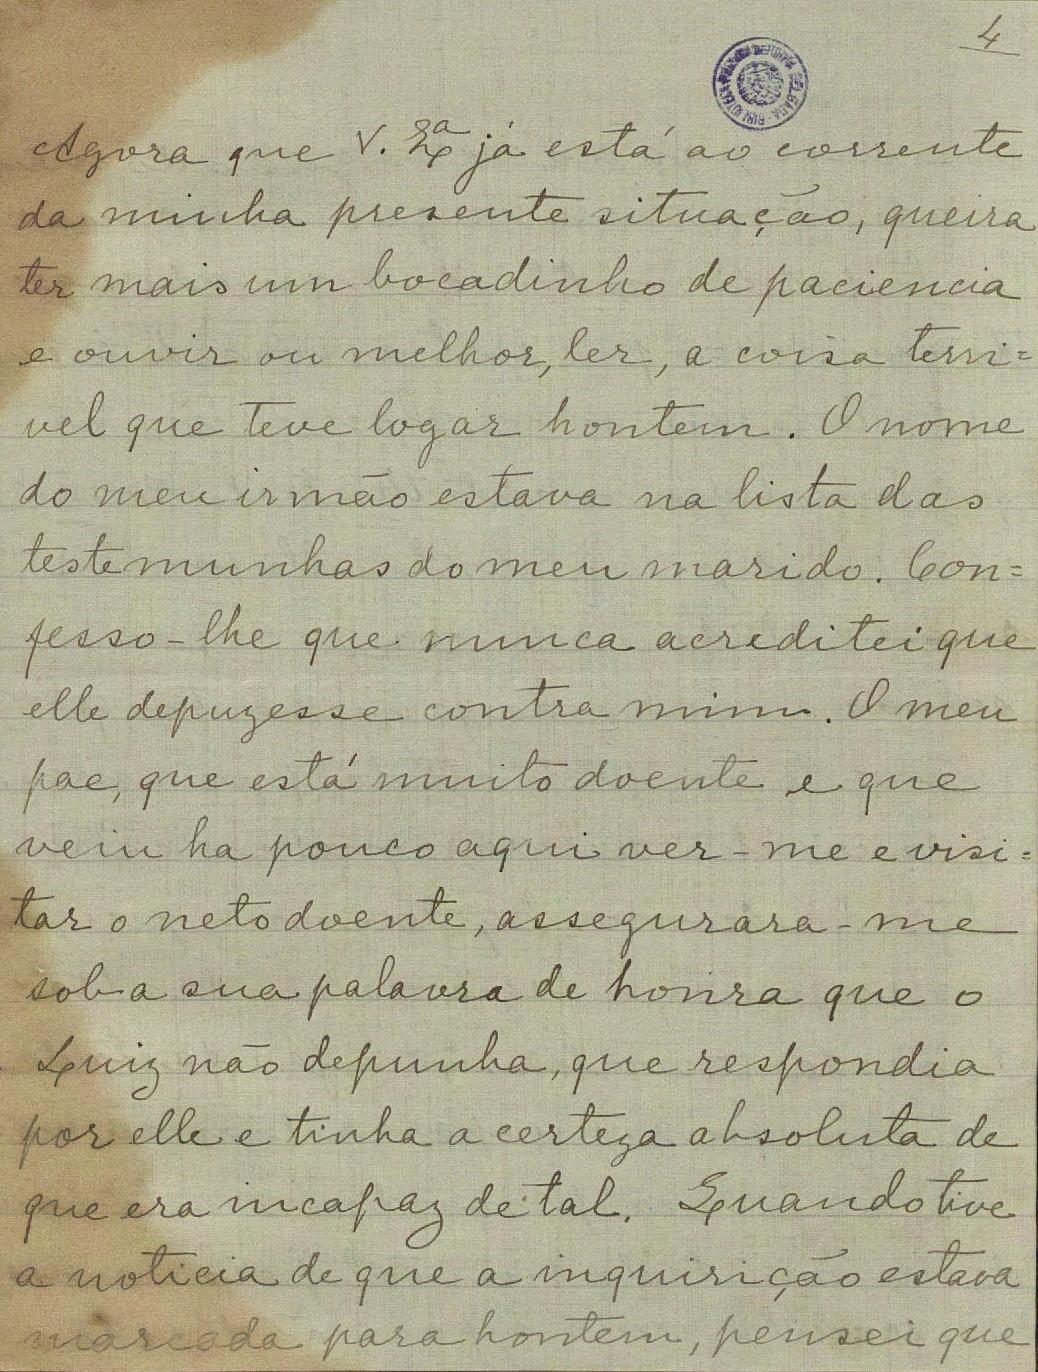 4
Agora que V. Ex.ª já está ao corrente
da minha presente situação, queira
ter mais um bocadinho de paciencia
e ouvir ou melhor, ler, a coisa terri=
vel que teve logar hontem. O nome
do meu irmão estava na lista das
testemunhas do meu marido. Con=
fesso-lhe que nunca acreditei que
elle depuzesse contra mim. O meu
pae, que está muito doente e que
veiu ha pouco aqui ver-me e visi=
tar o neto doente, assegurara-me
sob a sua palavra de honra que o
Luiz não depunha, que respondia
por elle e tinha a certeza absoluta de
que era incapaz de tal. Quando tive
a noticia de que a inquirição estava
marcada para hontem, pensei que